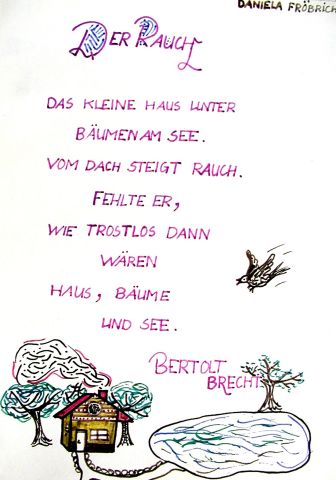 DANIELA FRÖBRICH
DER RAUCH
DAS KLEINE HAUS UNTER
BÄUMEN AM SEE.
VOM DACH STEIGT RAUCH.
FEHLTE ER,
WIE TROSTLOS DANN
WÄREN
HAUS, BÄUME
UND SEE.
BERTOLT
BRECHT